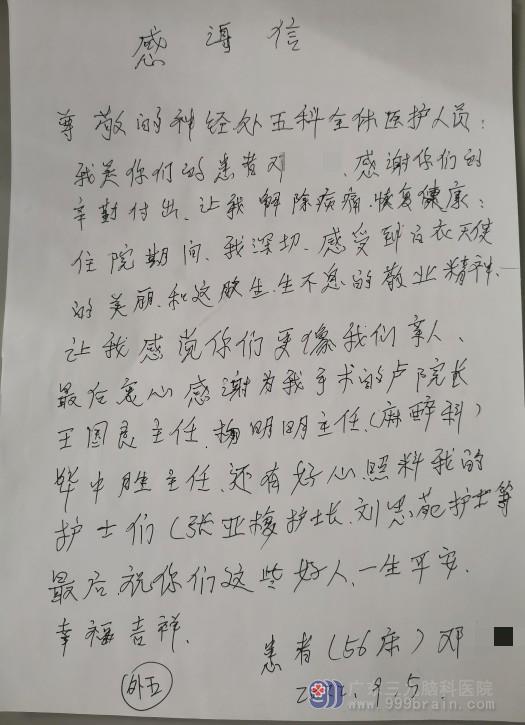 感谢信
尊敬的神经外五科全体医护人员:
我是你们的患者邓 感谢你们的
辛勤付出、让我解除病痛、恢复健康;
住院期间、我深切、感受到白衣天使
的美丽、和这股生、生不息的敬业精神、
让我感觉你们更像我们亲人、
最后衷心感谢为我手术的卢院长
王国良主任、杨明明主任、(麻醉科)
毕中胜主任、还有好心照料我的
护士们(张亚梅护士长、刘思苑护士等
最后、祝你们这些好人、一生平安、
幸福吉祥、
患者(56床)邓
外五
9.5
广东三九脑科医院
www.999brain.com